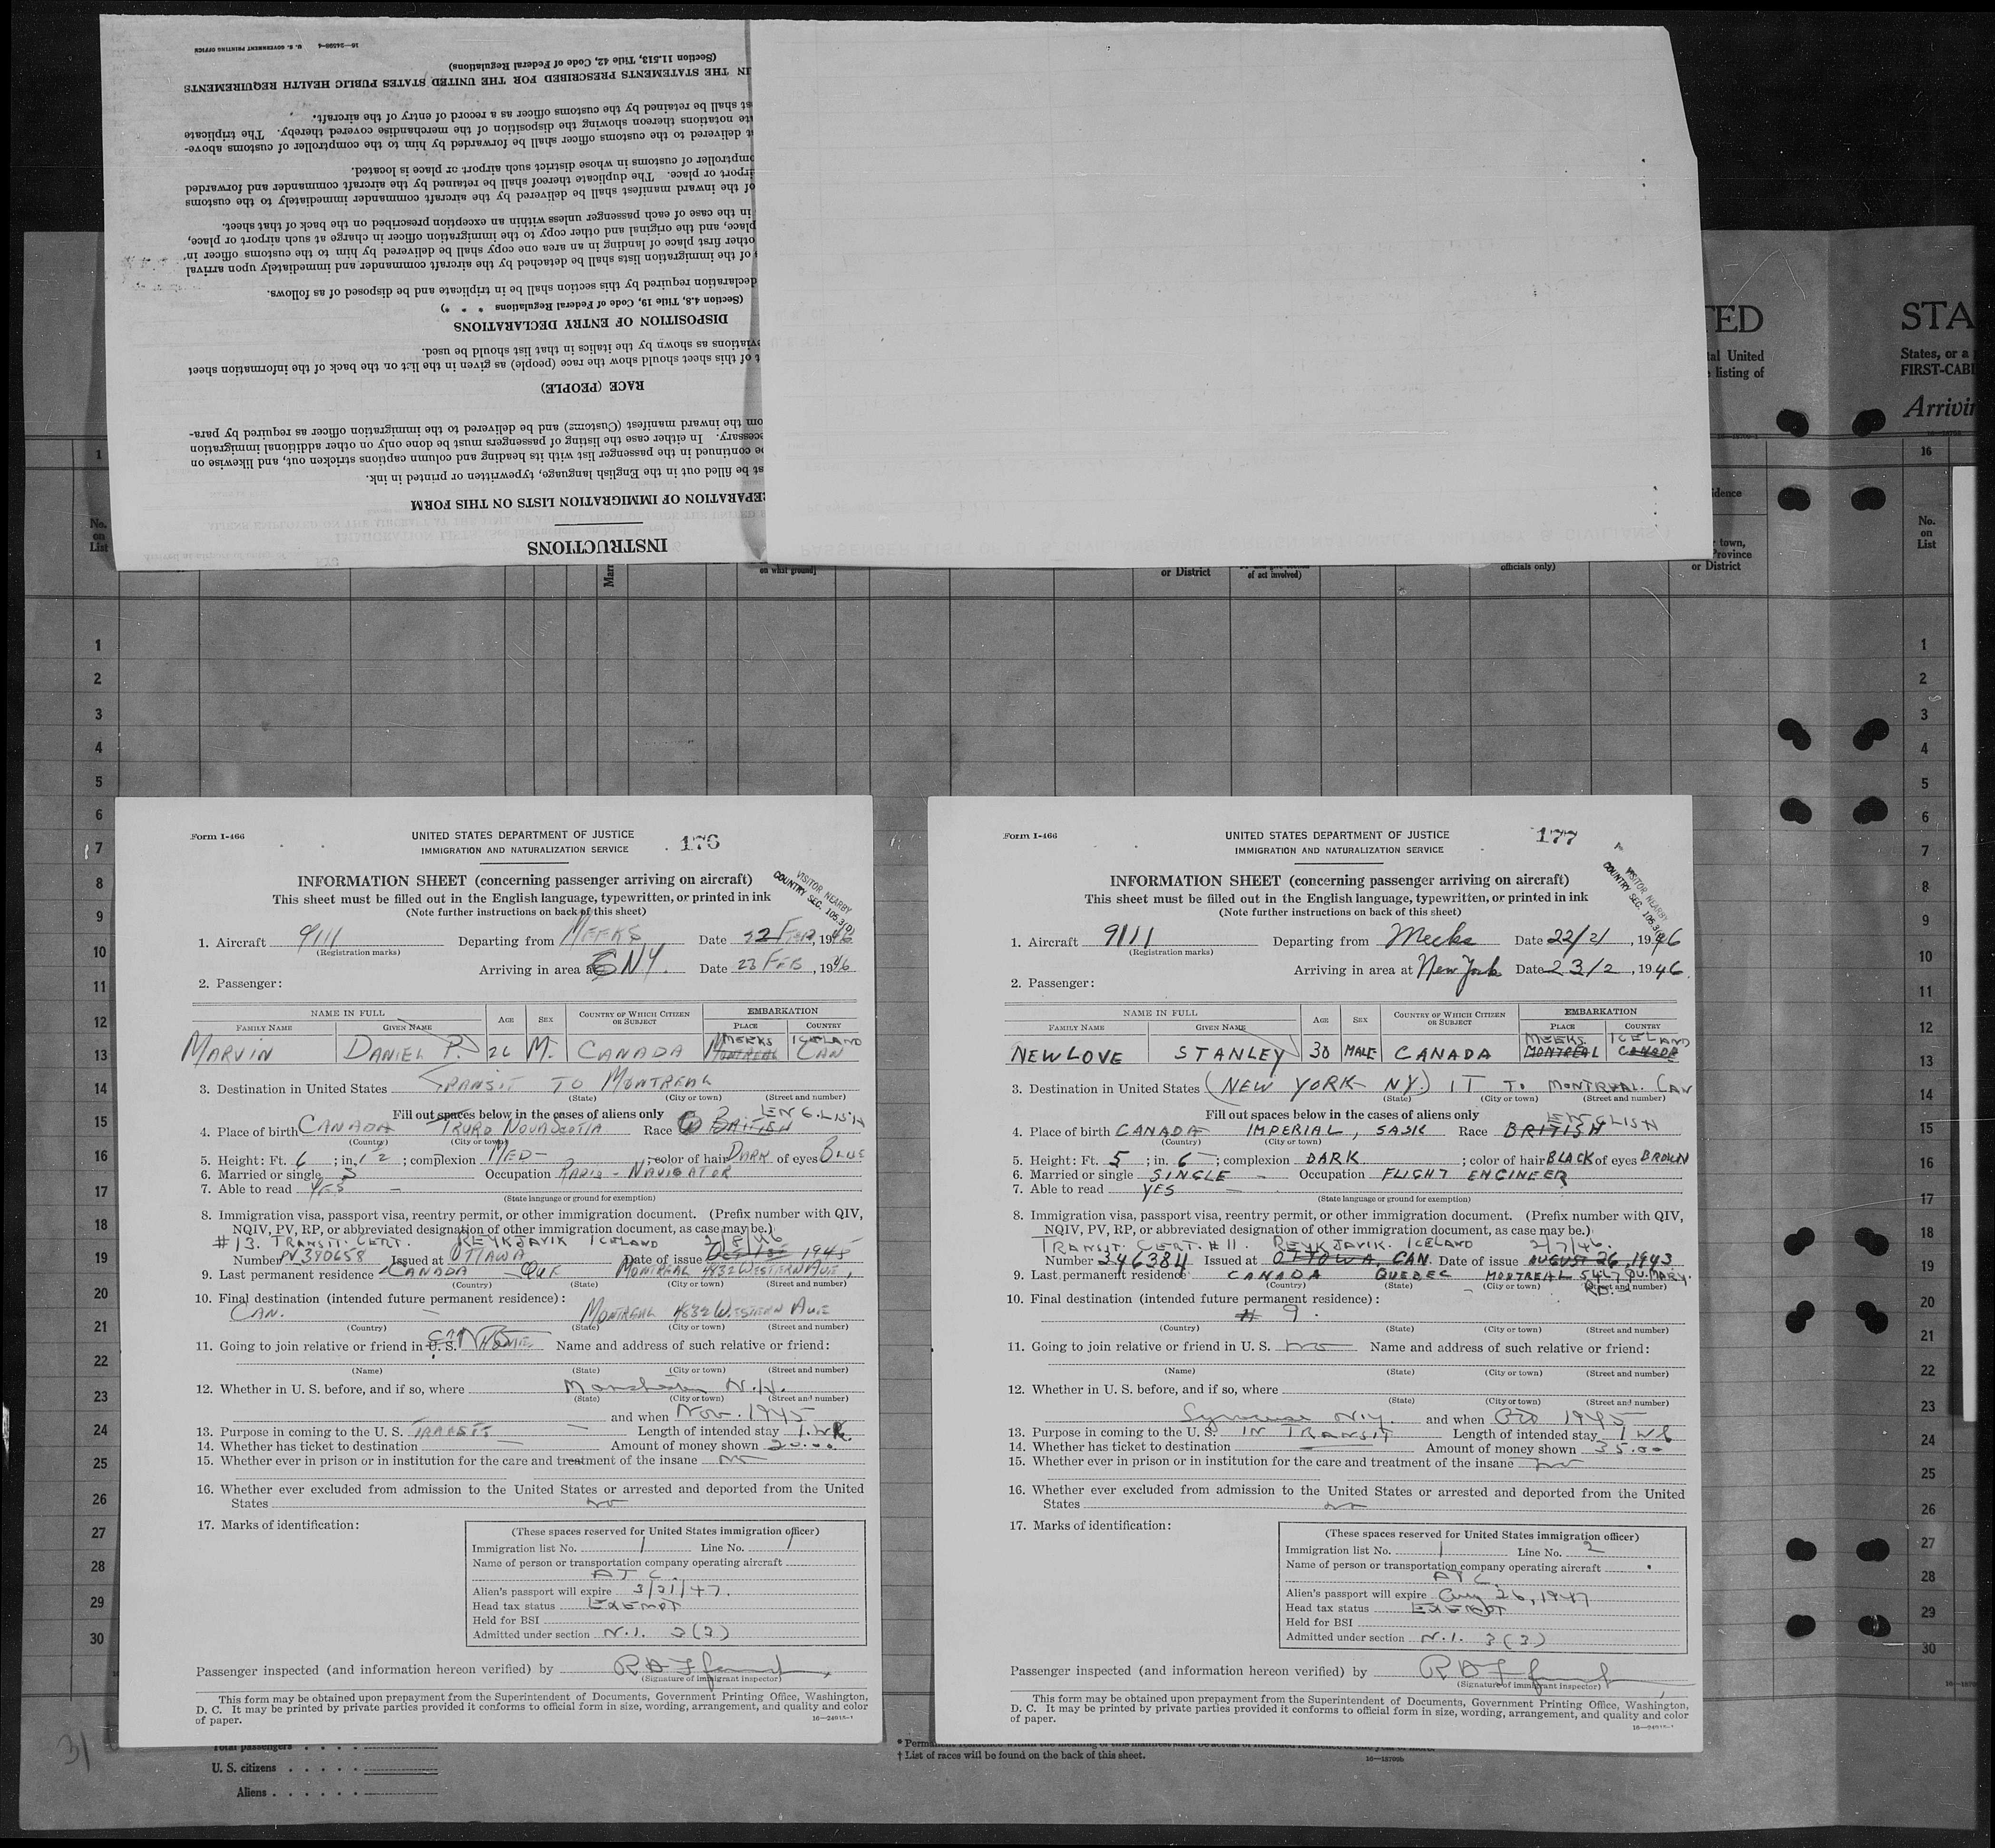 16—24598-4 U. S. GOVERNMENT PRINTING OFFICE
(Section 11.513, Title 42, Code of Federal Regulations)
IN THE STATEMENTS PRESCRIBED FOR THE UNITED STATES PUBLIC HEALTH REQUIREMENTS
st shall be retained by the customs officer as a record of entry of the aircraft.
te notations thereon showing the disposition of the merchandise covered thereby. The triplicate
t delivered to the customs officer shall be forwarded by him to the comptroller of customs above-
mptroller of customs in whose district such airport or place is located.
irport or place. The duplicate thereof shall be retained by the aircraft commander and forwarded
of the inward manifest shall be delivered by the aircraft commander immediately to the customs
in the case of each passenger unless within an exception prescribed on the back of that sheet.
place, and the original and other copy to the immigration officer in charge at such airport or place,
other first place of landing in an area one copy shall be delivered by him to the customs officer in
of the immigration lists shall be detached by the aircraft commander and immediately upon arrival
declaration required by this section shall be in triplicate and be disposed of as follows.
(Section 4.8, Title 19, Code of Federal Regulations * * *)
DISPOSITION OF ENTRY DECLARATIONS
viations as shown by the italics in that list should be used.
t of this sheet should show the race (people) as given in the list on the back of the information sheet
RACE (PEOPLE)
om the inward manifest (Customs) and be delivered to the immigration officer as required by para-
ecessary. In either case the listing of passengers must be done only on other additional immigration
be continued in the passenger list with its heading and column captions stricken out, and likewise on
st be filled out in the English language, typewritten or printed in ink.
EPARATION OF IMMIGRATION LISTS ON THIS FORM
INSTRUCTIONS
TED STA
tal United States, or a
listing of FIRST-CABI
Arrivin
1 16
idence
No. on List
town, Province or District
on what ground]
or District
of act involved)
officials only)
Form I-466
UNITED STATES DEPARTMENT OF JUSTICE 176
IMMIGRATION AND NATURALIZATION SERVICE
VISITOR NEARBY
COUNTRY SEC. 105.3(0)
INFORMATION SHEET (concerning passenger arriving on aircraft)
This sheet must be filled out in the English language, typewritten, or printed in ink
(Note further instructions on back of this sheet)
1. Aircraft 9111 Departing from MEEKS Date 22 FEB, 1946
(Registration marks)
Arriving in area at NY. Date 23 FEB, 1946
2. Passenger:
NAME IN FULL AGE SEX COUNTRY OF WHICH CITIZEN OR SUBJECT EMBARKATION
FAMILY NAME GIVEN NAME PLACE COUNTRY
MEEKS ICELAND
MARVIN DANIEL P. 26 M. CANADA MONTREAL CAN
3. Destination in United States TRANSIT TO MONTREAL
(State) (City or town) (Street and number)
Fill out spaces below in the cases of aliens only
ENGLISH
4. Place of birth CANADA TRURO NOVA SCOTIA Race BRITISH
(Country) (City or town)
5. Height: Ft. 6 ; in. 1/2 ; complexion MED- ; color of hair DARK of eyes BLUE
6. Married or single S Occupation RADIO - NAVIGATOR
7. Able to read YES –
(State language or ground for exemption)
8. Immigration visa, passport visa, reentry permit, or other immigration document. (Prefix number with QIV,
NQIV, PV, RP, or abbreviated designation of other immigration document, as case may be.)
#13. TRANSIT. CERT. REYKJAVIK ICELAND 2/8/46
Number PV 390658 Issued at OTTAWA Date of issue 1945
9. Last permanent residence CANADA QUE MONTREAL 4832 WESTERN AVE,
(Country) (State) (City or town) (Street and number)
10. Final destination (intended future permanent residence):
CAN. — MONTREAL 4832 WESTERN AVE
(Country) (State) (City or town) (Street and number)
11. Going to join relative or friend in U. S. Name and address of such relative or friend:
(Name) (State) (City or town) (Street and number)
12. Whether in U. S. before, and if so, where Manchester N.H.
(State) (City or town) (Street and number)
and when Nov. 1945
13. Purpose in coming to the U. S. TRANSIT — Length of intended stay 1 wk.
14. Whether has ticket to destination — Amount of money shown 20.00
15. Whether ever in prison or in institution for the care and treatment of the insane no
16. Whether ever excluded from admission to the United States or arrested and deported from the United
States no
17. Marks of identification:
(These spaces reserved for United States immigration officer)
Immigration list No. 1 Line No. 1
Name of person or transportation company operating aircraft
ATC.
Alien's passport will expire 3/21/47.
Head tax status EXEMPT
Held for BSI
Admitted under section N.I. 3(3)
Passenger inspected (and information hereon verified) by
(Signature of immigrant inspector)
This form may be obtained upon prepayment from the Superintendent of Documents, Government Printing Office, Washington,
D. C. It may be printed by private parties provided it conforms to official form in size, wording, arrangement, and quality and color
of paper. 16—24915-1
Form I-466
UNITED STATES DEPARTMENT OF JUSTICE 177
IMMIGRATION AND NATURALIZATION SERVICE
VISITOR NEARBY
COUNTRY SEC. 105.3(0)
INFORMATION SHEET (concerning passenger arriving on aircraft)
This sheet must be filled out in the English language, typewritten, or printed in ink
(Note further instructions on back of this sheet)
1. Aircraft 9111 Departing from Meeks Date 22/2/, 1946
(Registration marks)
Arriving in area at New York Date 23/2, 1946.
2. Passenger:
NAME IN FULL AGE SEX COUNTRY OF WHICH CITIZEN OR SUBJECT EMBARKATION
FAMILY NAME GIVEN NAME PLACE COUNTRY
MEEKS ICELAND
NEWLOVE STANLEY 30 MALE CANADA MONTREAL CANADA
3. Destination in United States (NEW YORK NY.) IT TO MONTREAL. CAN
(State) (City or town) (Street and number)
Fill out spaces below in the cases of aliens only
ENGLISH
4. Place of birth CANADA IMPERIAL, SASK Race BRITISH
(Country) (City or town)
5. Height: Ft. 5 ; in. 6 ; complexion DARK ; color of hair BLACK of eyes BROWN
6. Married or single SINGLE – Occupation FLIGHT ENGINEER
7. Able to read YES —
(State language or ground for exemption)
8. Immigration visa, passport visa, reentry permit, or other immigration document. (Prefix number with QIV,
NQIV, PV, RP, or abbreviated designation of other immigration document, as case may be.)
TRANSIT. CERT. #11. REYKJAVIK. ICELAND 2/7/46.
Number 346384 Issued at OTTOWA, CAN. Date of issue AUGUST 26, 1943
9. Last permanent residence CANADA QUEBEC MONTREAL 5467 QU. MARY.
(Country) (State) (City or town) (Street and number) RD.
10. Final destination (intended future permanent residence):
# 9.
(Country) (State) (City or town) (Street and number)
11. Going to join relative or friend in U. S. no Name and address of such relative or friend:
(Name) (State) (City or town) (Street and number)
12. Whether in U. S. before, and if so, where
(State) (City or town) (Street and number)
Syracuse N.Y. and when 1945
13. Purpose in coming to the U. S. IN TRANSIT Length of intended stay 1 wk
14. Whether has ticket to destination — Amount of money shown 35.00
15. Whether ever in prison or in institution for the care and treatment of the insane no
16. Whether ever excluded from admission to the United States or arrested and deported from the United
States no
17. Marks of identification:
(These spaces reserved for United States immigration officer)
Immigration list No. 1 Line No. 2
Name of person or transportation company operating aircraft
ATC
Alien's passport will expire Aug 26, 1947
Head tax status EXEMPT
Held for BSI
Admitted under section N.I. 3(3)
Passenger inspected (and information hereon verified) by
(Signature of immigrant inspector)
This form may be obtained upon prepayment from the Superintendent of Documents, Government Printing Office, Washington,
D. C. It may be printed by private parties provided it conforms to official form in size, wording, arrangement, and quality and color
of paper. 16—24915-1
1
2
3
4
5
6
7
8
9
10
11
12
13
14
15
16
17
18
19
20
21
22
23
24
25
26
27
28
29
30
31
Total passengers
U. S. citizens
Aliens
† List of races will be found on the back of this sheet.